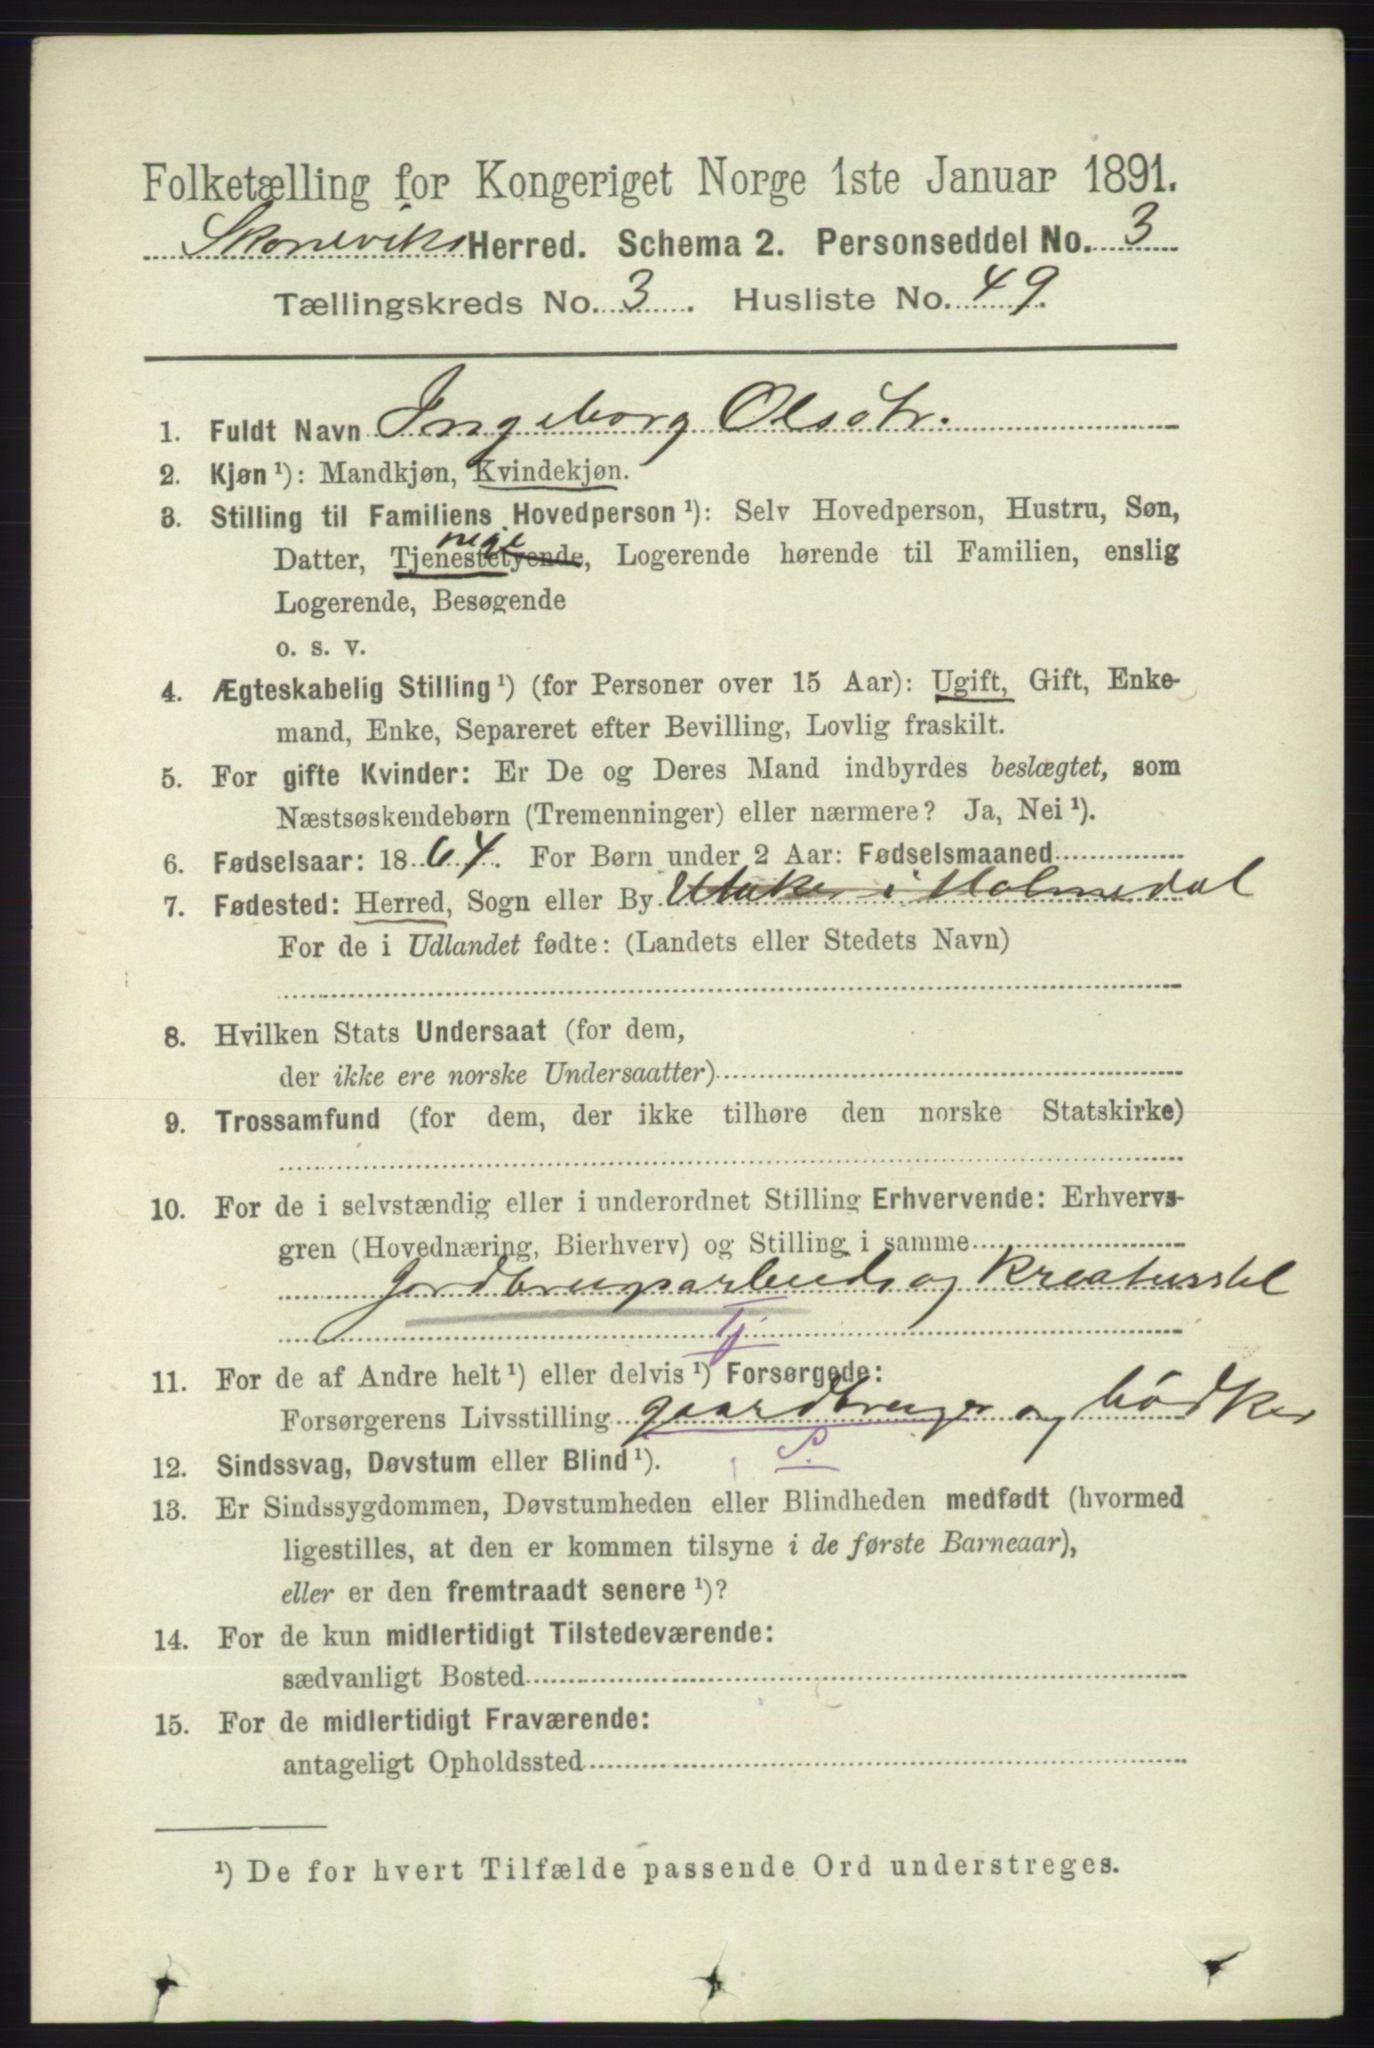 Folketælling for Kongeriget Norge 1ste Januar 1891.
Skoneviks Herred. Schema 2. Personseddel No. 3
Tællingskreds No. 3. Husliste No. 49.
1. Fuldt Navn Ingeborg Olsdtr.
2. Kjøn ¹): Mandkjøn, Kvindekjøn.
3. Stilling til Familiens Hovedperson ¹): Selv Hovedperson, Hustru, Søn,
pige
Datter, Tjenestetyende, Logerende hørende til Familien, enslig
Logerende, Besøgende
o. s. v.
4. Ægteskabelig Stilling ¹) (for Personer over 15 Aar): Ugift, Gift, Enke-
mand, Enke, Separeret efter Bevilling, Lovlig fraskilt.
5. For gifte Kvinder: Er De og Deres Mand indbyrdes beslægtet, som
Næstsøskendebørn (Tremenninger) eller nærmere? Ja, Nei ¹).
6. Fødselsaar: 1864. For Børn under 2 Aar: Fødselsmaaned
7. Fødested: Herred, Sogn eller By Utaker i Holmedal
For de i Udlandet fødte: (Landets eller Stedets Navn)
8. Hvilken Stats Undersaat (for dem,
der ikke ere norske Undersaatter)
9. Trossamfund (for dem, der ikke tilhøre den norske Statskirke)
10. For de i selvstændig eller i underordnet Stilling Erhvervende: Erhvervs-
gren (Hovednæring, Bierhverv) og Stilling i samme
Jordbrugsarbeide og Kreaturstel
Tj
11. For de af Andre helt ¹) eller delvis ¹) Forsørgede:
Forsørgerens Livsstilling gaardbruger og bødker
S.
12. Sindssvag, Døvstum eller Blind ¹).
13. Er Sindssygdommen, Døvstumheden eller Blindheden medfødt (hvormed
ligestilles, at den er kommen tilsyne i de første Barneaar),
eller er den fremtraadt senere ¹)?
14. For de kun midlertidigt Tilstedeværende:
sædvanligt Bosted
15. For de midlertidigt Fraværende:
antageligt Opholdssted
¹) De for hvert Tilfælde passende Ord understreges.